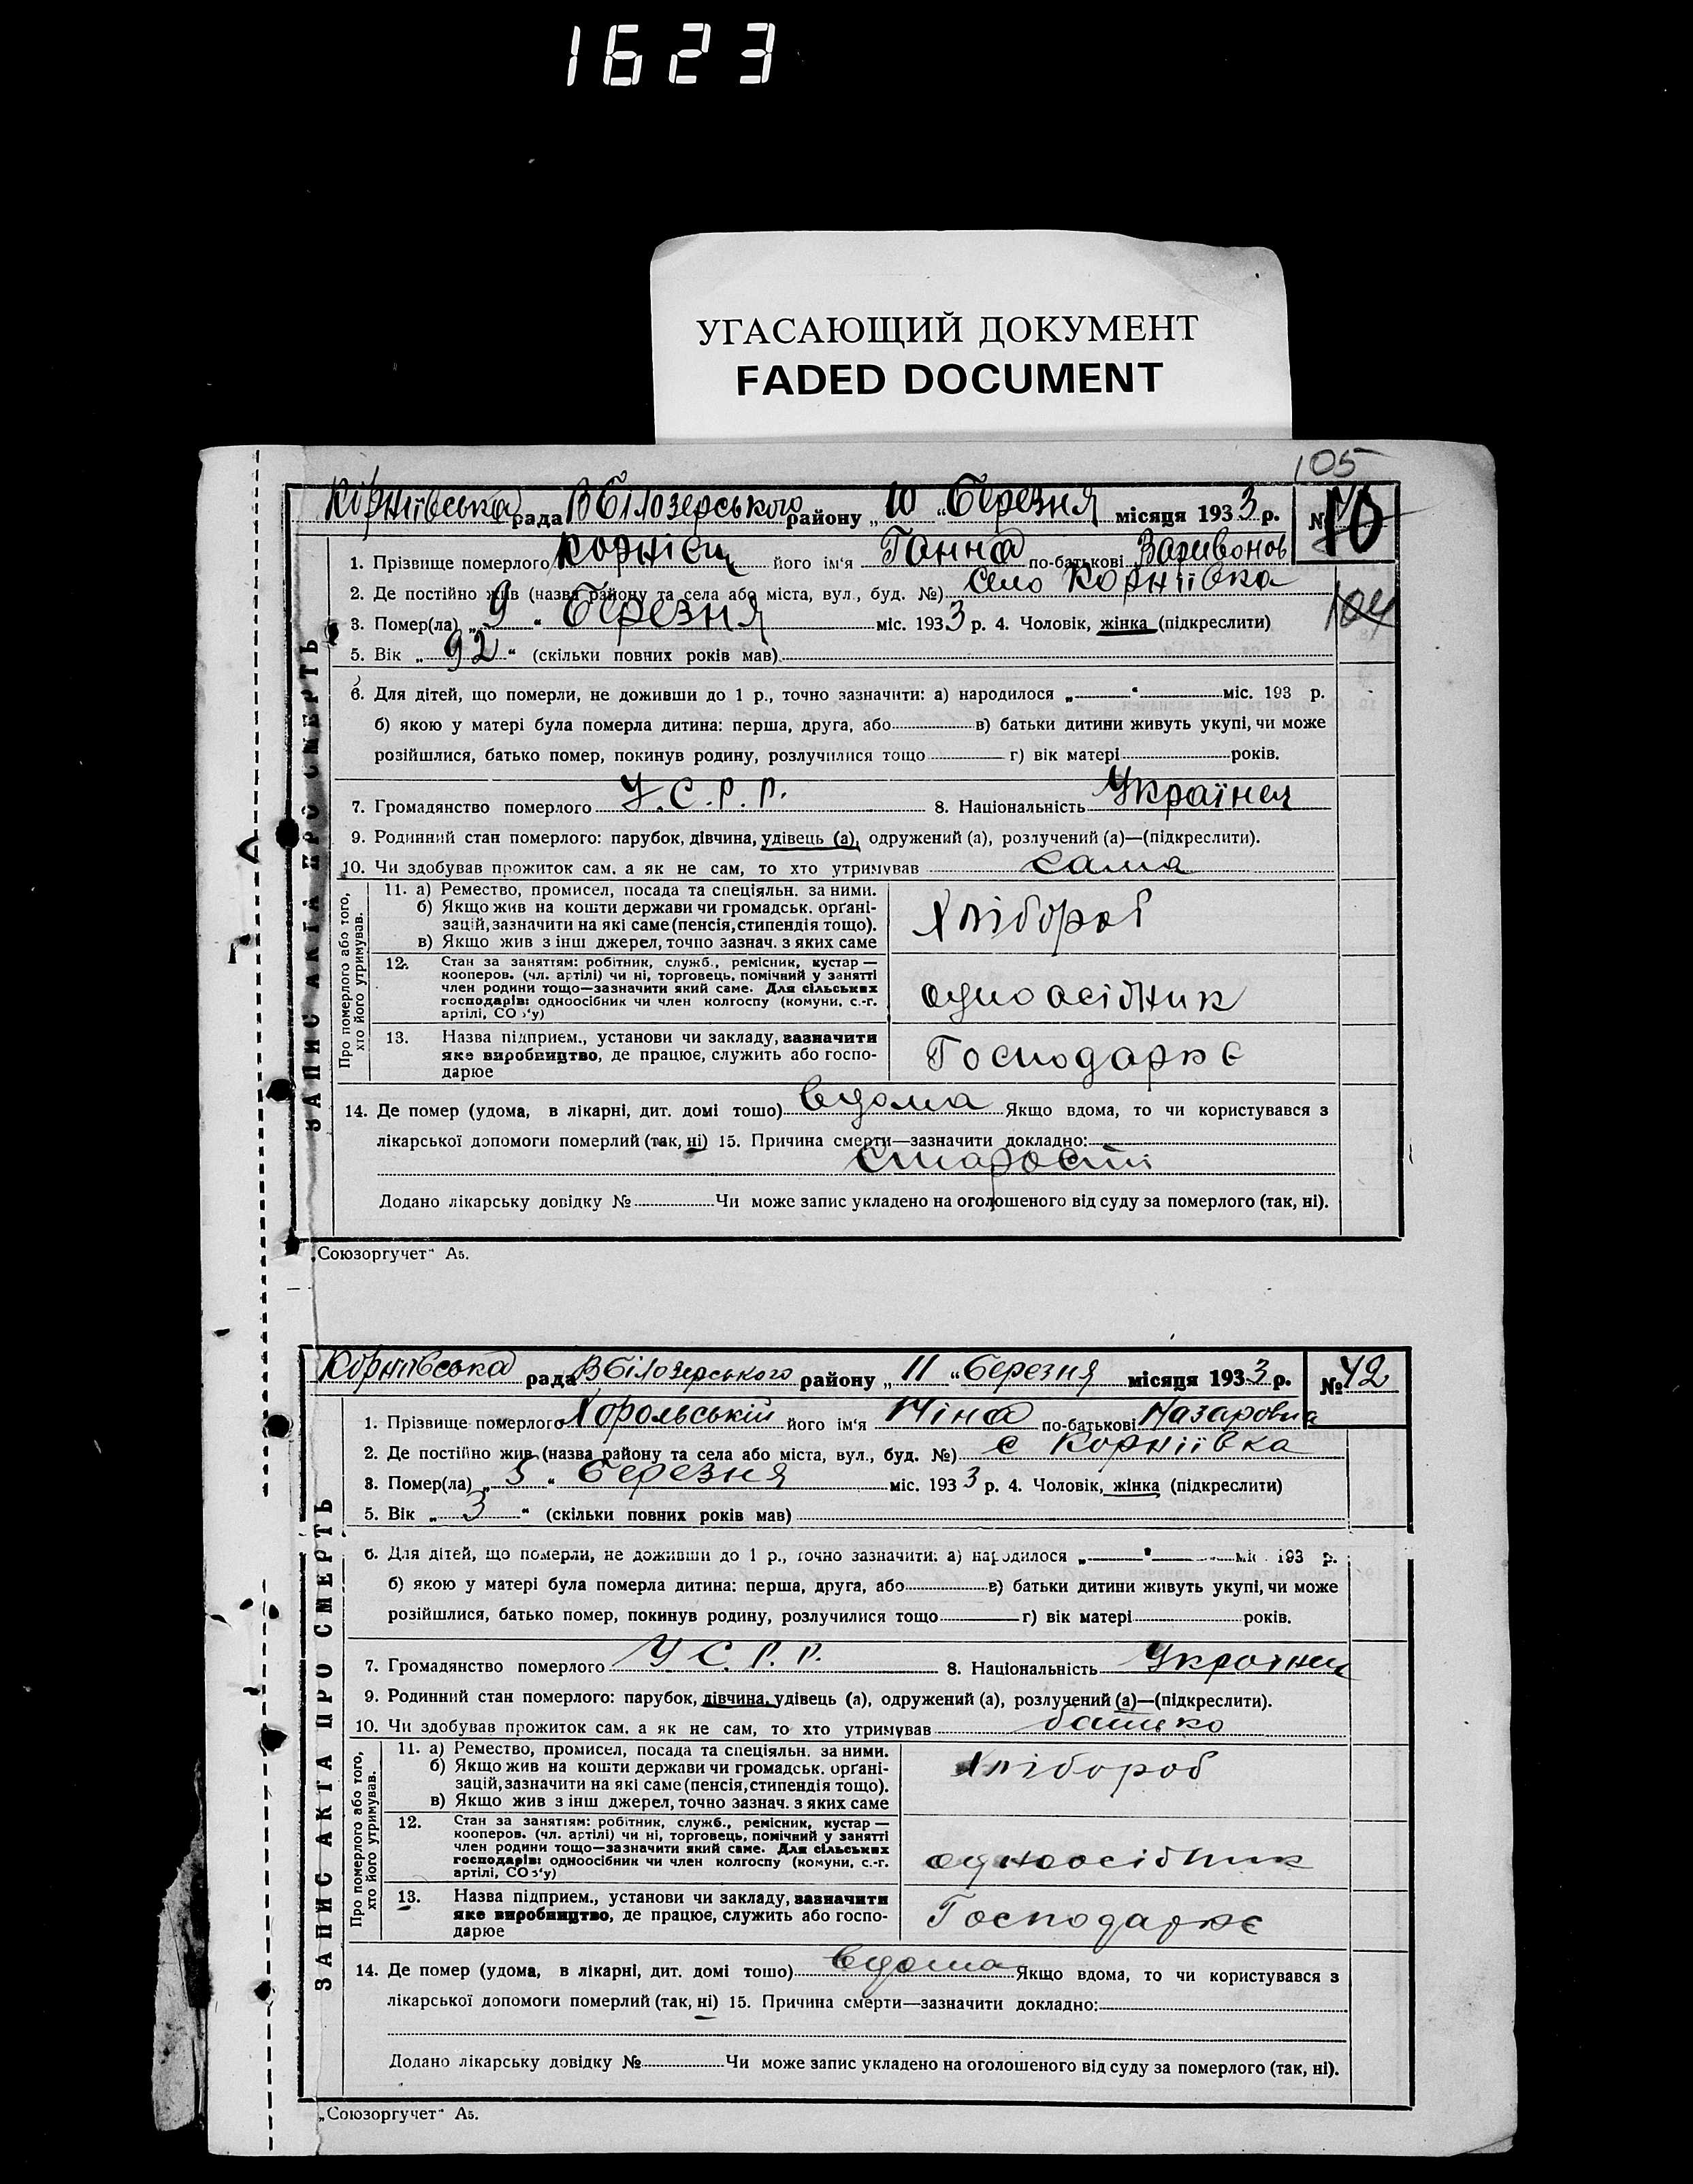 1623
УГАСАЮЩИЙ ДОКУМЕНТ
FADED DOCUMENT
105
Корніївська рада В Білозерського району „10“ Березня місяця 1933 р. № 70
1. Прізвище померлого Корнієц його ім'я Ганна по-батькові Заривонов
2. Де постійно жив (назва району та села або міста, вул., буд. №) село Корніївка
104
3. Помер(ла) „9“ Березня міс. 1933 р. 4. Чоловік, жінка (підкреслити)
5. Вік „92“ (скільки повних років мав)
6. Для дітей, що померли, не доживши до 1 р., точно зазначити: а) народилося „ “ міс. 193 р.
б) якою у матері була померла дитина: перша, друга, або в) батьки дитини живуть укупі, чи може
розійшлися, батько помер, покинув родину, розлучилися тощо г) вік матері років.
7. Громадянство померлого У.С.Р.Р. 8. Національність Українец
9. Родинний стан померлого: парубок, дівчина, удівець (а), одружений (а), розлучений (а)—(підкреслити).
10. Чи здобував прожиток сам, а як не сам, то хто утримував сама
ЗАПИС АКТА ПРО СМЕРТЬ
Про померлого або того, хто його утримував.
11. а) Ремество, промисел, посада та спеціяльн. за ними.
б) Якщо жив на кошти держави чи громадськ. орґані-
зацій, зазначити на які саме (пенсія, стипендія тощо).
в) Якщо жив з інш джерел, точно зазнач. з яких саме
Хлібороб
12. Стан за заняттям: робітник, служб., ремісник, кустар —
кооперов. (чл. артілі) чи ні, торговець, помічний у занятті
член родини тощо—зазначити який саме. Для сільських
господарів: одноосібник чи член колгоспу (комуни, с.-г.
артілі, СОЗ'у)
одноосібник
13. Назва підприєм., установи чи закладу, зазначити
яке виробництво, де працює, служить або госпо-
дарює
Господаркє
14. Де помер (удома, в лікарні, дит. домі тошо) вдома Якщо вдома, то чи користувався з
лікарської допомоги померлий (так, ні) 15. Причина смерти—зазначити докладно:
старости
Додано лікарську довідку № Чи може запис укладено на оголошеного від суду за померлого (так, ні).
„Союзоргучет“ А5.
Корніївська рада В Білозерського району „11“ Березня місяця 1933 р. № 42
1. Прізвище померлого Хорольській його ім'я Ніна по-батькові Назаровна
2. Де постійно жив (назва району та села або міста, вул., буд. №) с Корніївка
3. Помер(ла) „5“ Березня міс. 1933 р. 4. Чоловік, жінка (підкреслити)
5. Вік „3“ (скільки повних років мав)
6. Для дітей, що померли, не доживши до 1 р., точно зазначити: а) народилося „ “ міс. 193 р.
б) якою у матері була померла дитина: перша, друга, або в) батьки дитини живуть укупі, чи може
розійшлися, батько помер, покинув родину, розлучилися тощо г) вік матері років.
7. Громадянство померлого У С.Р.Р. 8. Національність Українец
9. Родинний стан померлого: парубок, дівчина, удівець (а), одружений (а), розлучений (а)—(підкреслити).
10. Чи здобував прожиток сам, а як не сам, то хто утримував батько
ЗАПИС АКТА ПРО СМЕРТЬ
Про померлого або того, хто його утримував.
11. а) Ремество, промисел, посада та спеціяльн. за ними.
б) Якщо жив на кошти держави чи громадськ. орґані-
зацій, зазначити на які саме (пенсія, стипендія тощо).
в) Якщо жив з інш джерел, точно зазнач. з яких саме
Хлібороб
12. Стан за заняттям: робітник, служб., ремісник, кустар —
кооперов. (чл. артілі) чи ні, торговець, помічний у занятті
член родини тощо—зазначити який саме. Для сільських
господарів: одноосібник чи член колгоспу (комуни, с.-г.
артілі, СОЗ'у)
одноосібник
13. Назва підприєм., установи чи закладу, зазначити
яке виробництво, де працює, служить або госпо-
дарює
Господаркє
14. Де помер (удома, в лікарні, дит. домі тошо) вдома Якщо вдома, то чи користувався з
лікарської допомоги померлий (так, ні) 15. Причина смерти—зазначити докладно:
Додано лікарську довідку № Чи може запис укладено на оголошеного від суду за померлого (так, ні).
„Союзоргучет“ А5.